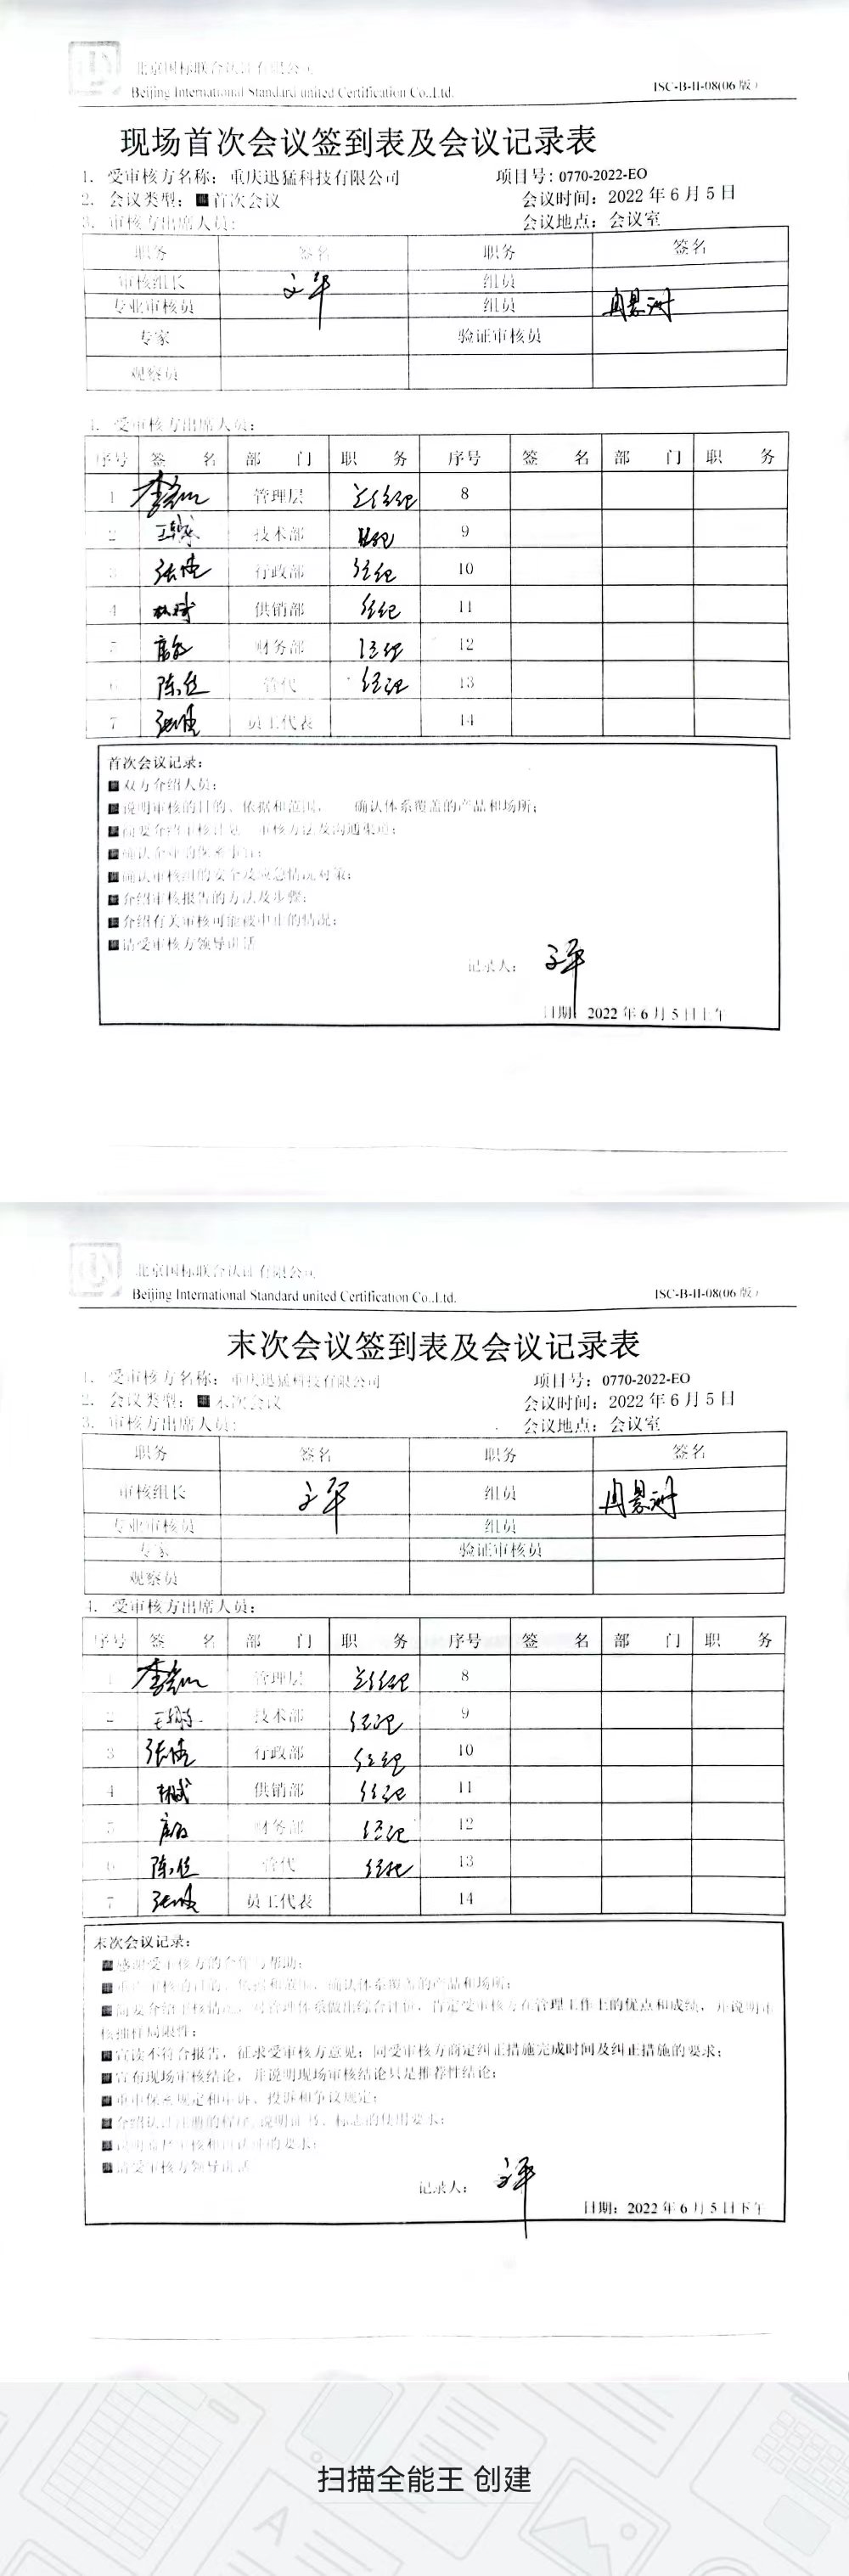 北京国标联合认证有限公司
Beijing International Standard united Certification Co.,Ltd.
ISC-B-II-08(06版)
现场首次会议签到表及会议记录表
1. 受审核方名称：重庆迅猛科技有限公司 项目号：0770-2022-EO
2. 会议类型：■首次会议 会议时间：2022 年 6 月 5 日
3. 审核方出席人员： 会议地点：会议室
职务 签名 职务 签名
审核组长 文平 组员
专业审核员 组员
专家 验证审核员
观察员
4. 受审核方出席人员：
序号 签 名 部 门 职 务 序号 签 名 部 门 职 务
1 管理层 总经理 8
2 技术部 经理 9
3 张倩 行政部 经理 10
4 林斌 供销部 经理 11
5 财务部 经理 12
6 管代 经理 13
7 张倩 员工代表 14
首次会议记录：
■双方介绍人员；
■说明审核的目的、依据和范围， 确认体系覆盖的产品和场所；
■简要介绍审核计划 审核方法及沟通渠道；
■确认企业的保密事宜；
■确认审核组的安全及应急情况对策；
■介绍审核报告的方法及步骤；
■介绍有关审核可能被中止的情况；
■请受审核方领导讲话
记录人： 文平
日期：2022 年 6 月 5 日上午
北京国标联合认证有限公司
Beijing International Standard united Certification Co.,Ltd.
ISC-B-II-08(06版)
末次会议签到表及会议记录表
1. 受审核方名称：重庆迅猛科技有限公司 项目号：0770-2022-EO
2. 会议类型：■末次会议 会议时间：2022 年 6 月 5 日
3. 审核方出席人员： 会议地点：会议室
职务 签名 职务 签名
审核组长 文平 组员
专业审核员 组员
专家 验证审核员
观察员
4. 受审核方出席人员：
序号 签 名 部 门 职 务 序号 签 名 部 门 职 务
1 管理层 总经理 8
2 技术部 经理 9
3 张倩 行政部 经理 10
4 林斌 供销部 经理 11
5 财务部 经理 12
6 管代 经理 13
7 张倩 员工代表 14
末次会议记录：
■感谢受审核方的合作与帮助；
■重申审核的目的、依据和范围，确认体系覆盖的产品和场所；
■简要介绍审核情况，对管理体系做出综合评价，肯定受审核方在管理工作上的优点和成绩，并说明审
核抽样局限性；
■宣读不符合报告，征求受审核方意见；同受审核方商定纠正措施完成时间及纠正措施的要求；
■宣布现场审核结论，并说明现场审核结论只是推荐性结论；
■重申保密规定和申诉、投诉和争议规定；
■介绍认证注册的程序，说明证书、标志的使用要求；
■说明监督审核和再认证的要求；
■请受审核方领导讲话
记录人： 文平
日期：2022 年 6 月 5 日下午
扫描全能王 创建